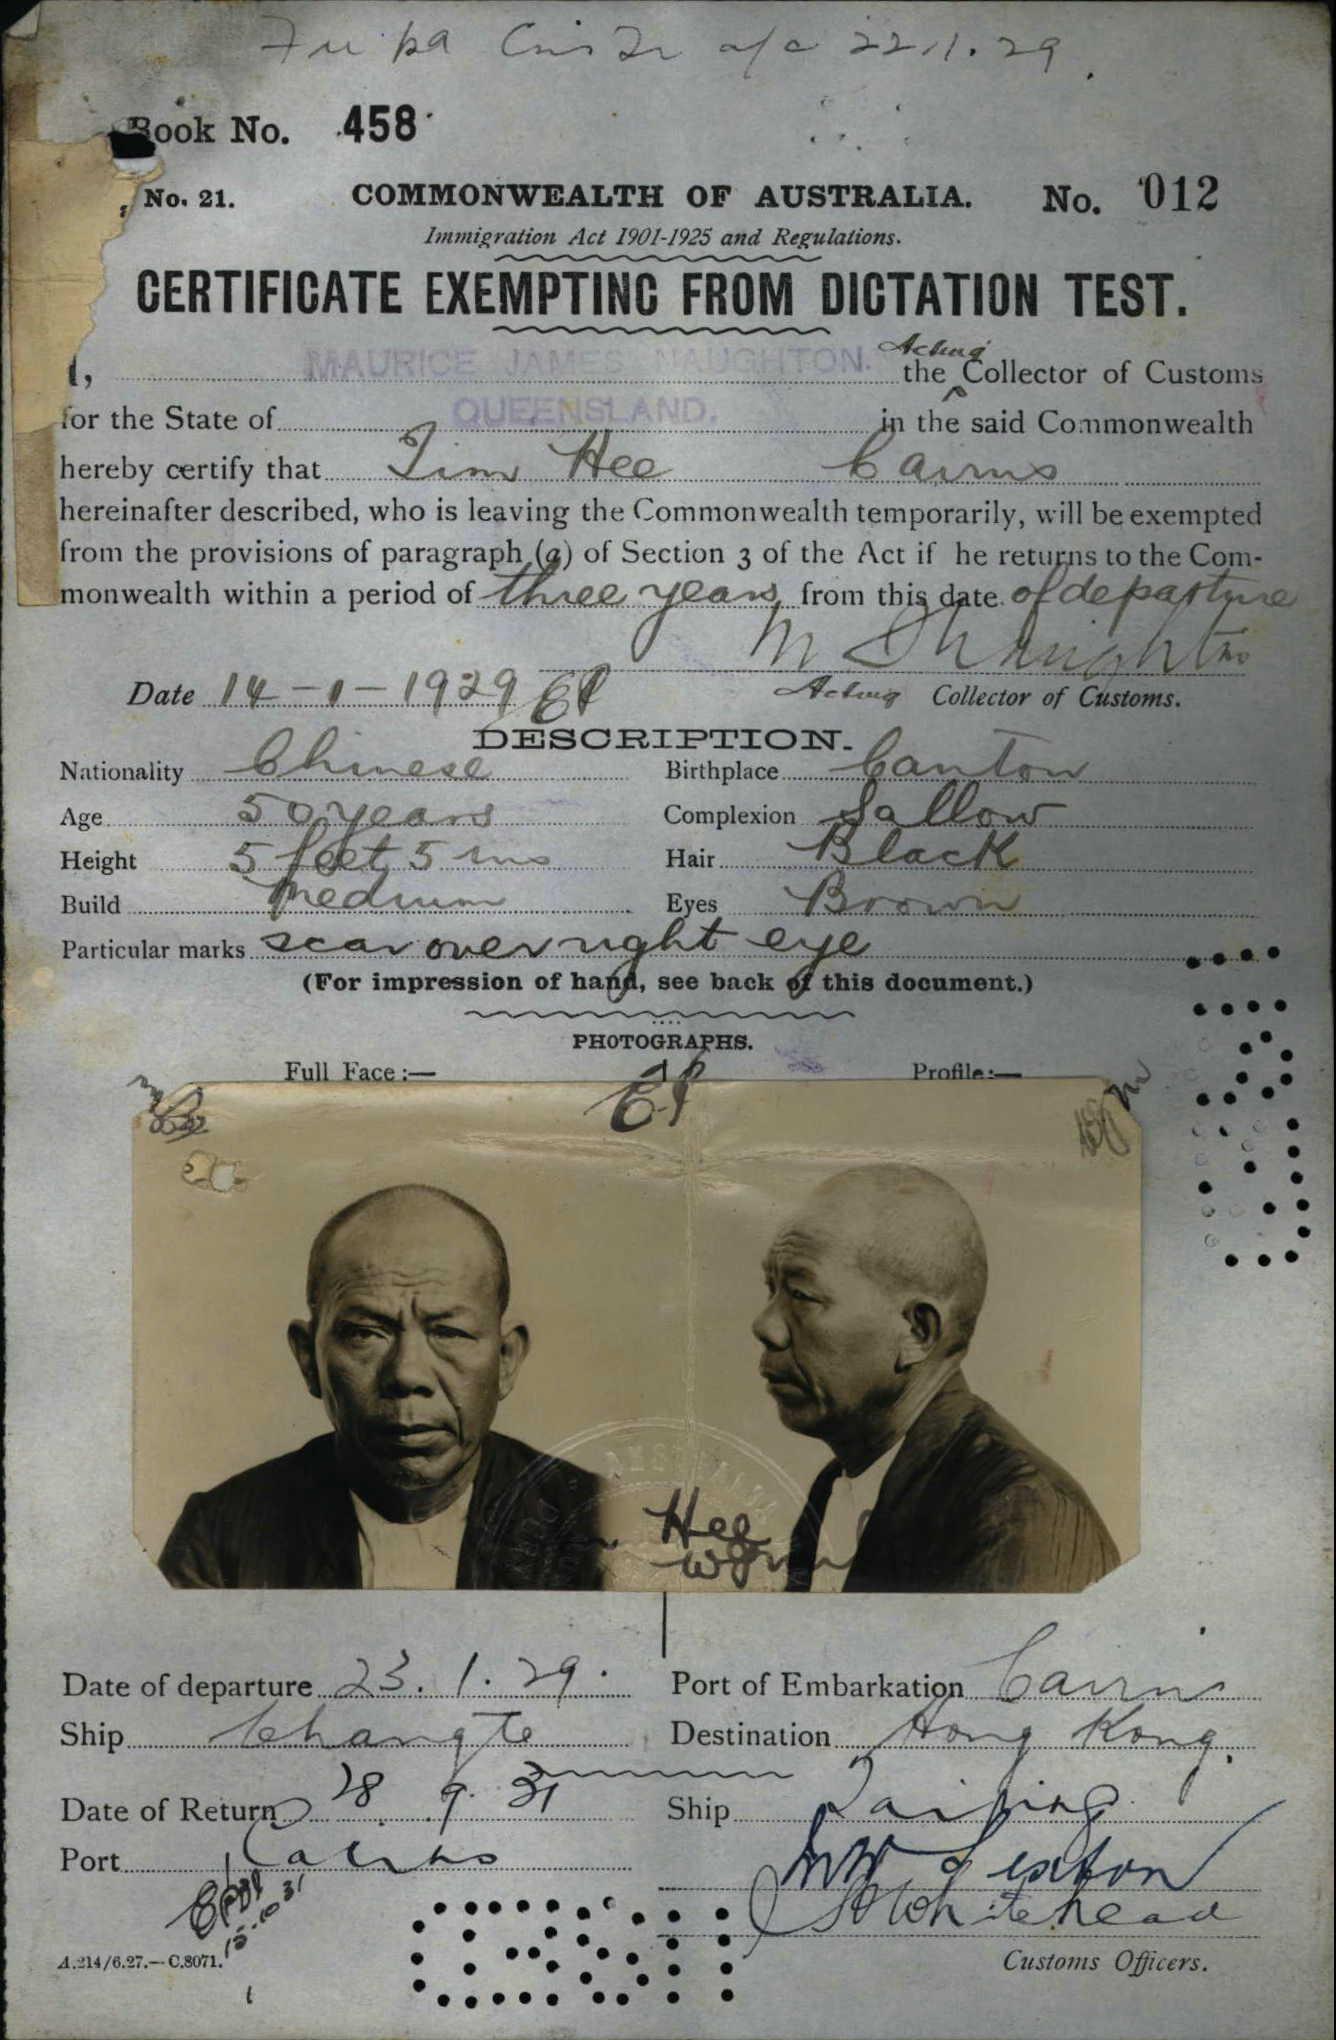 a/c 22.1.29.
Book No. 458
No. 21. COMMONWEALTH OF AUSTRALIA. No. 012
Immigration Act 1901-1925 and Regulations.
CERTIFICATE EXEMPTING FROM DICTATION TEST.
I, MAURICE JAMES NAUGHTON. the Acting Collector of Customs
for the State of QUEENSLAND. in the said Commonwealth
hereby certify that Tim Hee Cairns
hereinafter described, who is leaving the Commonwealth temporarily, will be exempted
from the provisions of paragraph (a) of Section 3 of the Act if he returns to the Com-
monwealth within a period of three years from this date of departure
M J Naughton
Date 14-1-1929 Acting Collector of Customs.
DESCRIPTION.
Nationality Chinese Birthplace Canton
Age 50 years Complexion Sallow
Height 5 feet 5 ins Hair Black
Build Medium Eyes Brown
Particular marks scar over right eye
(For impression of hand, see back of this document.)
PHOTOGRAPHS.
Full Face:— Profile:—
Hee
Date of departure 23.1.29. Port of Embarkation Cairns
Ship Changte Destination Hong Kong.
Date of Return 28 9. 31 Ship Taiping
Port Cairns
Sexton
Whitehead
15.10.31
A.214/6.27.—C.8071. Customs Officers.